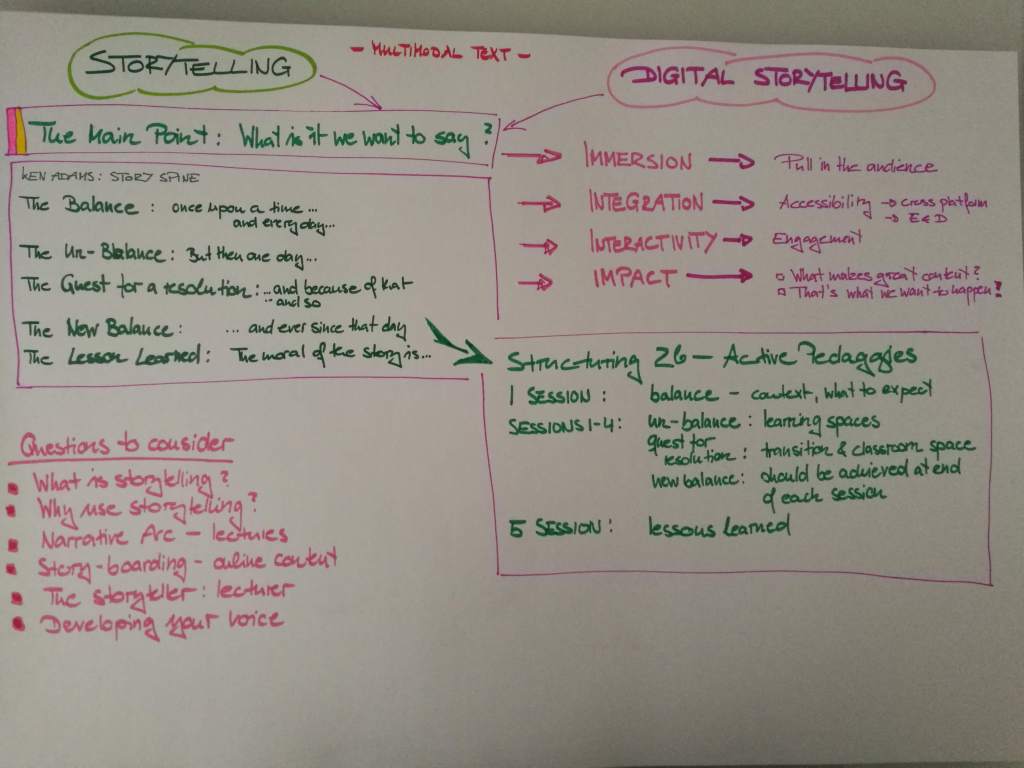 - MULTIMODAL TEXT -
STORYTELLING
DIGITAL STORYTELLING
The Main Point: What is it we want to say?
KEN ADAMS: STORY SPINE
The Balance: once upon a time...
and every day...
The Un-Balance: But then one day...
The Quest for a resolution: ...and because of that
...and so
The New Balance: ... and ever since that day
The Lesson Learned: The moral of the story is...
IMMERSION → Pull in the audience
INTEGRATION → Accessibility → cross platform
→ E&D
INTERACTIVITY → Engagement
IMPACT → What makes great content?
That's what we want to happen!
Structuring 26 - Active Pedagogies
1 SESSION: balance - context, what to expect
SESSIONS 1-4: un-balance: learning spaces
quest for
resolution: transition & classroom space
new balance: should be achieved at end
of each session
5 SESSION: lessons learned
Questions to consider
What is storytelling?
Why use storytelling?
Narrative Arc - lectures
Story-boarding - online content
The storyteller: lecturer
Developing your voice